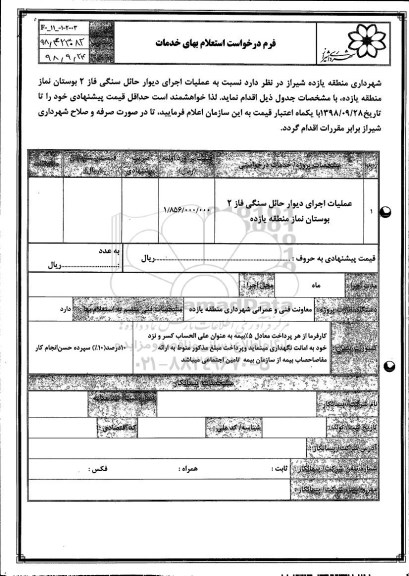 F۰_۱۱_۰۱۰۲۰۰۳
۹۸/۴۲۳۰۸۳
۹۸/۹/۲۴
فرم درخواست استعلام بهای خدمات
شهرداری منطقه یازده شیراز در نظر دارد نسبت به عملیات اجرای دیوار حائل سنگی فاز ۲ بوستان نماز
منطقه یازده، با مشخصات جدول ذیل اقدام نماید. لذا خواهشمند است حداقل قیمت پیشنهادی خود را تا
تاریخ ۱۳۹۸/۰۹/۲۸ با یکماه اعتبار قیمت به این سازمان اعلام فرمایید، تا در صورت صرفه و صلاح شهرداری
شیراز برابر مقررات اقدام گردد.
۱
عملیات اجرای دیوار حائل سنگی فاز ۲
بوستان نماز منطقه یازده
۱/۸۵۶/۰۰۰/۰۰۰
قیمت پیشنهادی به حروف : ریال
به عدد
: ریال
مدت اجرا
ماه
محل اجرا
معاونت فنی و عمرانی شهرداری منطقه یازده
دارد
کارفرما از هر پرداخت معادل ۵٪ بیمه به عنوان علی الحساب کسر و نزد
خود به امانت نگهداری مینماید وپرداخت مبلغ مذکور منوط به ارائه
مفاصاحساب بیمه از سازمان بیمه تامین اجتماعی میباشد
۱۰درصد(۱۰٪) سپرده حسن‌انجام کار
مشخصات پیمانکار
نام شرکت/پیمانکار :
شناسه/کد ملی :
کد اقتصادی :
آدرس شرکت/پیمانکار :
ثابت :
همراه :
فکس :
۰۲۱-۸۸۳۴۹۶۷۰-۵